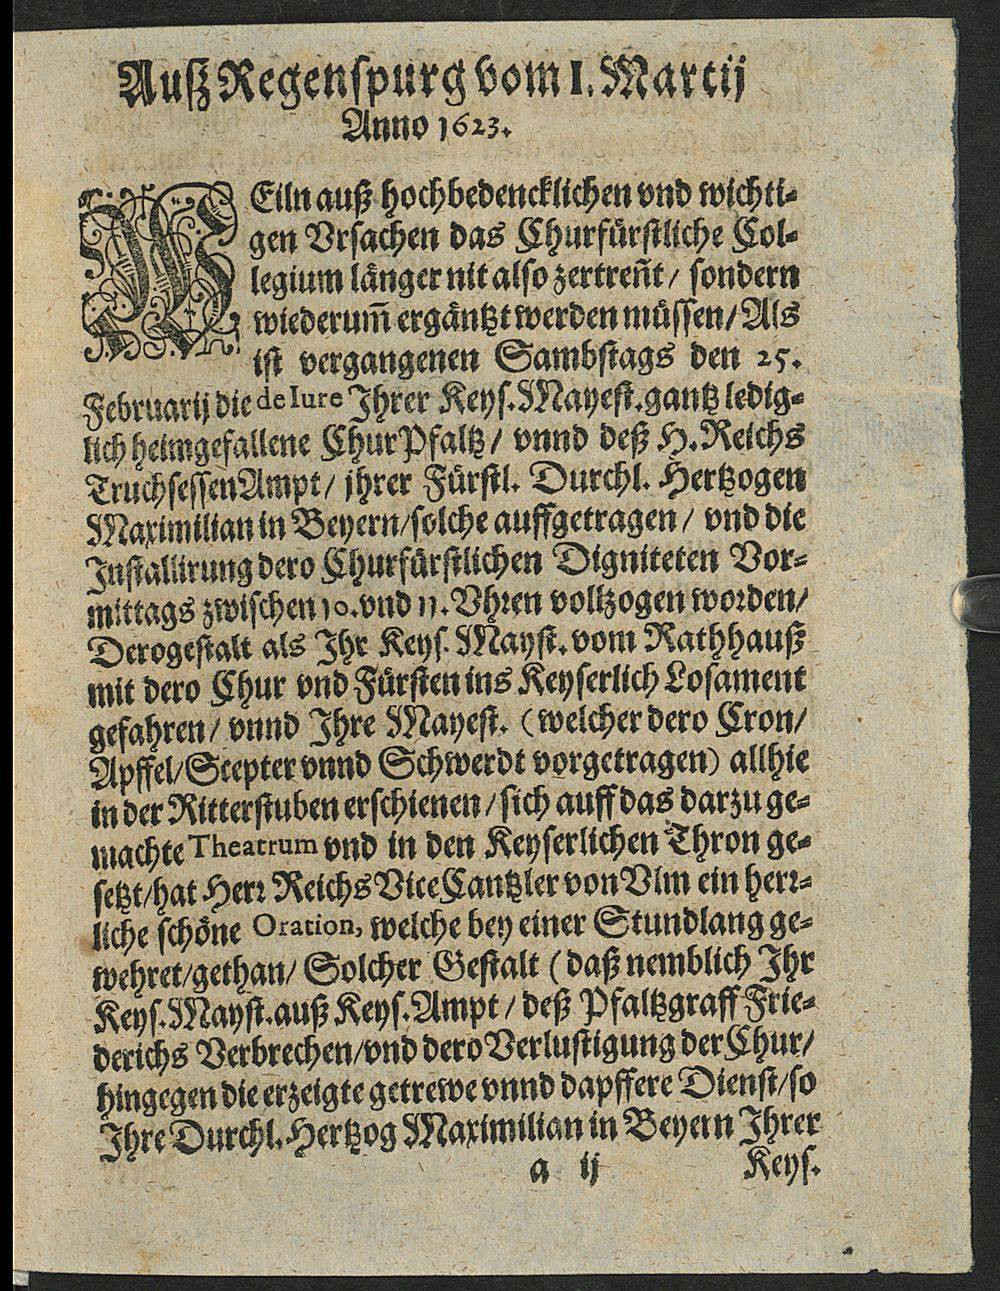 Auſz Regenſpurg vom 1. Martij
Anno 1623.
WEiln auß hochbedencklichen vnd wichti-
gen Vrſachen das Churfürſtliche Col-
legium länger nit alſo zertreñt / ſondern
wiederum̃ ergäntzt werden müſſen / Als
iſt vergangenen Sambſtags den 25.
Februarij die de Iure Ihrer Keyſ. Mayeſt. gantz ledig-
lich heimgefallene ChurPfaltz / vnnd deß H. Reichs
TruchſeſſenAmpt / jhrer Fürſtl. Durchl. Hertzogen
Maximilian in Beyern / ſolche auffgetragen / vnd die
Inſtallirung dero Churfürſtlichen Digniteten Vor-
mittags zwiſchen 10. vnd 11. Vhren vollzogen worden /
Derogeſtalt als Ihr Keyſ. Mayſt. vom Rathhauß
mit dero Chur vnd Fürſten ins Keyſerlich Loſament
gefahren / vnnd Ihre Mayeſt. (welcher dero Cron /
Apffel / Scepter vnnd Schwerdt vorgetragen) allhie
in der Ritterſtuben erſchienen / ſich auff das darzu ge-
machte Theatrum vnd in den Keyſerlichen Thron ge-
ſetzt / hat Herꝛ Reichs ViceCantzler von Vlm ein herꝛ-
liche ſchöne Oration, welche bey einer Stundlang ge-
wehret / gethan / Solcher Geſtalt (daß nemblich Ihr
Keyſ. Mayſt. auß Keyſ. Ampt / deß Pfaltzgraff Frie-
derichs Verbrechen / vnd dero Verluſtigung der Chur /
hingegen die erzeigte getrewe vnnd dapffere Dienſt / ſo
Ihre Durchl. Hertzog Maximilian in Beyern Ihrer
a ij Keyſ.